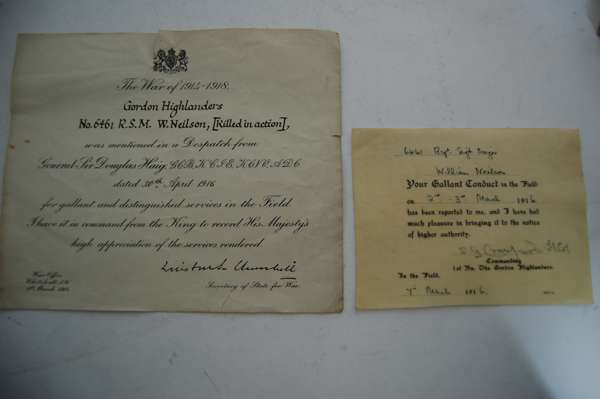 The War of 1914-1918.
Gordon Highlanders
No. 6461 R.S.M. W. Neilson, [Killed in action],
was mentioned in a Despatch from
General Sir Douglas Haig, G.C.B., K.C.I.E., K.C.V.O., A.D.C.
dated 30th April 1916
for gallant and distinguished services in the Field.
I have it in command from the King to record His Majesty's
high appreciation of the services rendered.
Winston S. Churchill
Secretary of State for War.
War Office
Whitehall, S.W.
1st March 1919.
6461 Regt. Sergt. Major
William Neilson
Your Gallant Conduct in the Field
on 2nd 3rd March 1916
has been reported to me, and I have had
much pleasure in bringing it to the notice
of higher authority.
Commanding
1st Bn. The Gordon Highlanders.
In the Field.
7th March 1916.